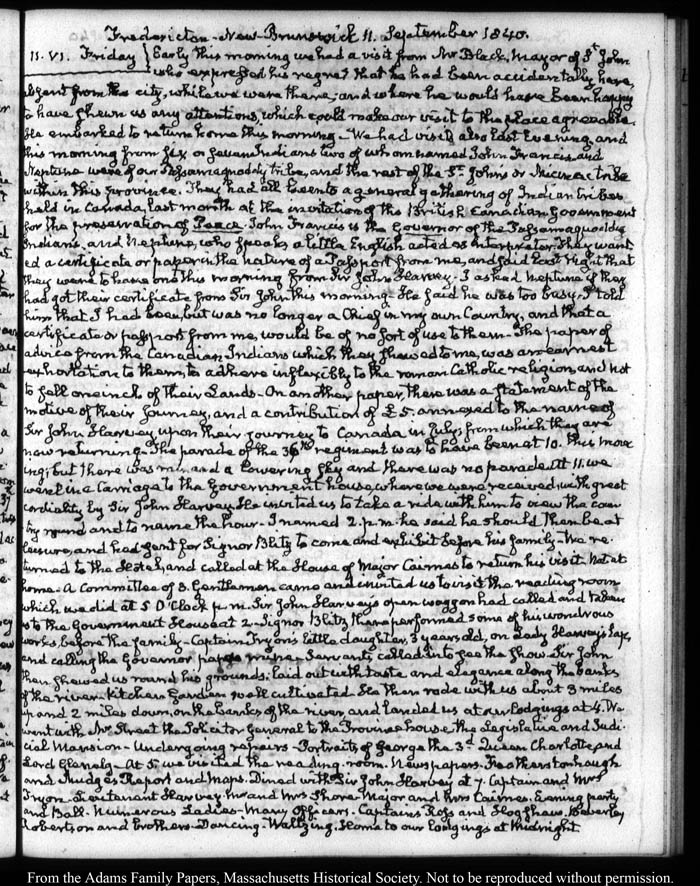 Fredericton - New-Brunswick 11. September 1840.
11. VI. Friday } Early this morning we had a visit from Mr Black, Mayor of St John
who expressed his regret that he had been accidentally here,
absent from the city, while we were there, and where he would have been happy
to have shewn us any attentions, which could make our visit to the place agreeable.
He embarked to return home this morning - We had visits also last Evening and
this morning from six or seven Indians two of whom named John Francis, and
Neptune were of our Passamaquoddy tribe, and the rest of the St Johns or Micmac tribe
within this province. They had all been to a general gathering of Indian tribes
held in Canada last month at the invitation of the British Canadian Government
for the preservation of Peace. John Francis is the Governor of the Passamaquoddy
Indians, and Neptune, who speaks a little English acted as Interpreter. They want
ed a certificate or paper in the nature of a Passport from me, and said last Night that
they were to have one this morning from Sir John Harvey - I asked Neptune if they
had got their certificate from Sir John this morning - He said he was too busy. I told
him that I had been, but was no longer a Chief in my own Country, and that a
certificate or passport from me, would be of no sort of use to them - The paper of
advice from the Canadian Indians which they shewed to me, was an earnest
exhortation to them, to adhere inflexibly to the roman Catholic religion, and not
to sell one inch of their Lands - On another paper, there was a statement of the
motive of their journey, and a contribution of £5. annexed to the name of
Sir John Harvey upon their journey to Canada in July, from which they are
now returning - The parade of the 36th regiment was to have been at 10. this morn
ing; but there was and a lowering sky and there was no parade. At 11. we
went in a Carriage to the Government house, where we were received with great
cordiality by Sir John Harvey. He invited us to take a ride with him to view the coun
try round and to name the hour - I named 2. p.m. he said he should then be at
leisure, and had sent for Signor Blitz to come and exhibit before his family - We re-
turned to the Hotel, and called at the House of Major Cairnes to return his visit. Not at
home. A Committee of 3. Gentlemen came and invited us to visit the reading room
which we did at 5 O'Clock p.m. Sir John Harvey's open waggon had called and taken
us to the Government House at 2. Signor Blitz there performed some of his wondrous
works before the family - Captain Tryon's little daughter, 3 years old, on Lady Harvey's lap,
and calling the Governor papa mine - Servants called in to see the show. Sir John
then shewed us round his grounds, laid out with taste and elegance along the banks
of the river. Kitchen Garden well cultivated. He then rode with us about 3 miles
up and 2 miles down, on the banks of the river, and landed us at our lodgings at 4. We
went with Mr Street the Solicitor General to the Province house, the Legislative and Judi-
cial Mansion - Undergoing repairs - Portraits of George the 3d Queen Charlotte, and
Lord Glenelg - At 5. we visited the reading-room. Newspapers. Featherstonhaugh
and Mudge's Report and Maps. Dined with Sir John Harvey at 7. Captain and Mrs
Tryon - Lieutenant Harvey Mr and Mrs Shore - Major and Mrs Cairnes. Evening party
and Ball - Numerous Ladies - Many Officers. Captains Ross and Beverley
Robertson and brothers - Dancing - Waltzing. Home to our lodgings at Midnight.
From the Adams Family Papers, Massachusetts Historical Society. Not to be reproduced without permission.